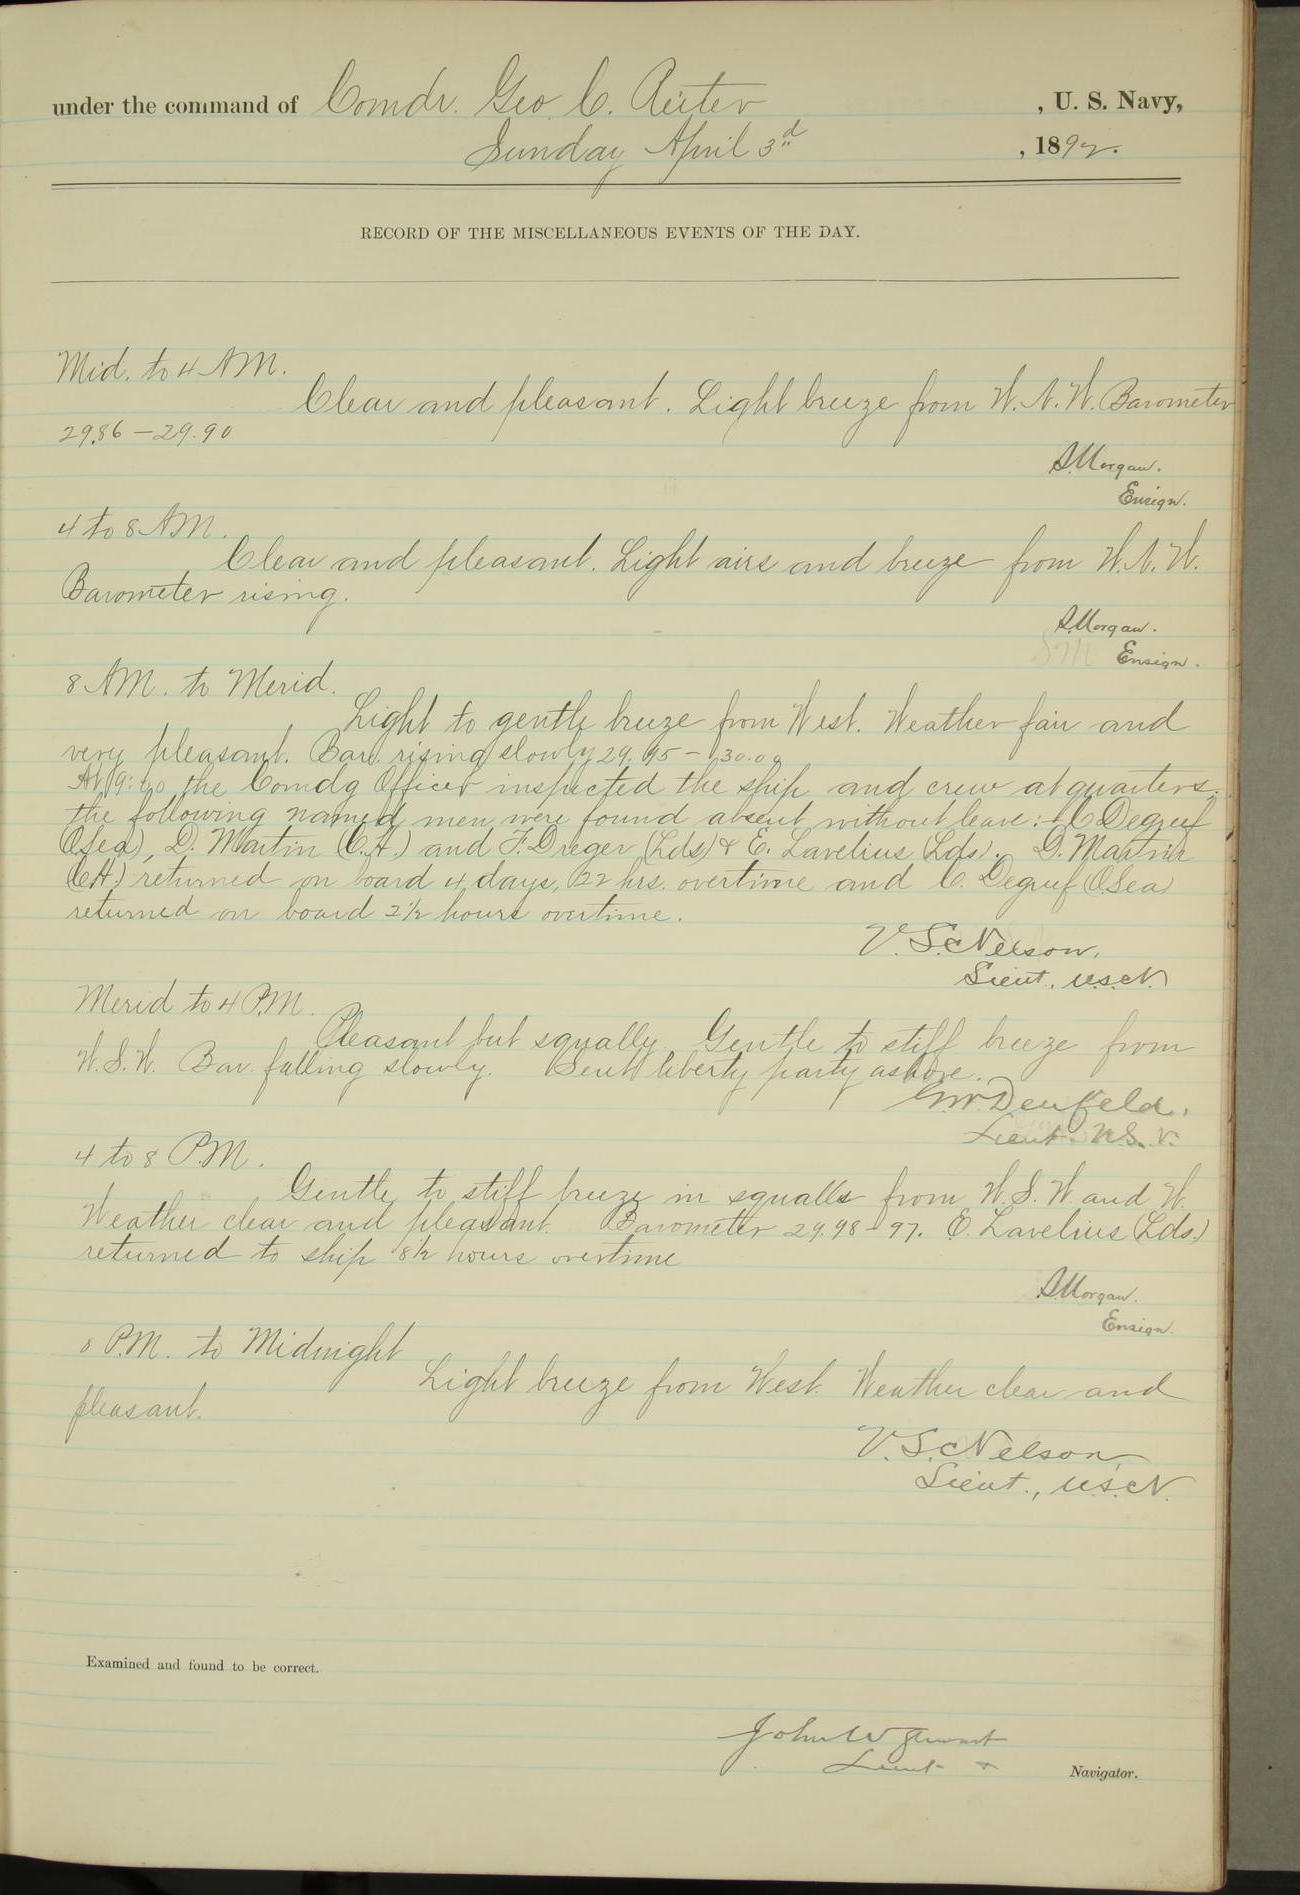 under the command of Comdr. Geo. C. Reiter, U. S. Navy,
Sunday April 3d, 1892.
RECORD OF THE MISCELLANEOUS EVENTS OF THE DAY.
Mid. to 4 AM.
Clear and pleasant. Light breeze from W.N.W. Barometer
29.86 – 29.90
S. Morgan.
Ensign.
4 to 8 AM.
Clear and pleasant. Light airs and breeze from W.N.W.
Barometer rising.
S. Morgan.
Ensign.
8 AM. to Merid.
Light to gentle breeze from West. Weather fair and
very pleasant. Bar. rising slowly 29.95 – 30.00
At 9:30 the Comdg Officer inspected the ship and crew at quarters.
the following named men were found absent without leave: C Degruf
(OSea), D. Martin (C.H.) and F. Dreger (Lds) & E. Lavelius (Lds). D. Martin
(CH.) returned on board 4 days, 22 hrs. overtime and C. Degruf (OSea)
returned on board 2½ hours overtime.
V. S. Nelson,
Lieut. U.S.N.
Merid to 4 P.M.
Pleasant but squally. Gentle to stiff breeze from
W.S.W. Bar. falling slowly. Sent liberty party ashore.
G.W. Denfeld,
Lieut. U.S.N.
4 to 8 P.M.
Gentle to stiff breeze in squalls from W.S.W and W.
Weather clear and pleasant. Barometer 29.98 – 97. E. Lavelius (Lds.)
returned to ship 8½ hours overtime
S. Morgan.
Ensign.
8 P.M. to Midnight
Light breeze from West. Weather clear and
pleasant.
V. S. Nelson,
Lieut., U.S.N.
Examined and found to be correct.
John W Stewart
Lieut & Navigator.